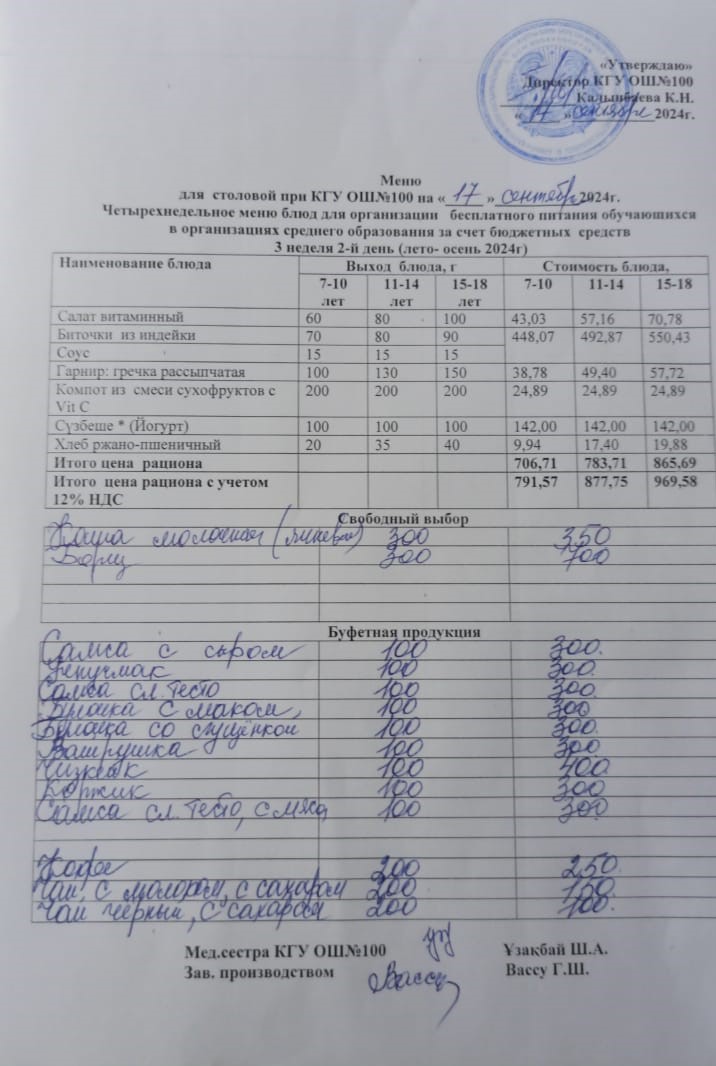 «Утверждаю»
Директор КГУ ОШ№100
Калынбаева К.Н.
« 17 » сентября 2024г.
Меню
для столовой при КГУ ОШ№100 на « 17 » сентябр 2024г.
Четырехнедельное меню блюд для организации бесплатного питания обучающихся
в организациях среднего образования за счет бюджетных средств
3 неделя 2-й день (лето- осень 2024г)
Наименование блюда Выход блюда, г Стоимость блюда,
7-10 лет 11-14 лет 15-18 лет 7-10 11-14 15-18
Салат витаминный 60 80 100 43,03 57,16 70,78
Биточки из индейки 70 80 90 448,07 492,87 550,43
Соус 15 15 15
Гарнир: гречка рассыпчатая 100 130 150 38,78 49,40 57,72
Компот из смеси сухофруктов с 200 200 200 24,89 24,89 24,89
Vit C
Сүзбеше * (Йогурт) 100 100 100 142,00 142,00 142,00
Хлеб ржано-пшеничный 20 35 40 9,94 17,40 19,88
Итого цена рациона 706,71 783,71 865,69
Итого цена рациона с учетом 791,57 877,75 969,58
12% НДС
Свободный выбор
Каша молочная 300 350
Борщ 300 700
Буфетная продукция
Самса с сыром 100 300.
100 300.
Самса сл. тесто 100 300.
Булочка с маком, 100 300
Булочка со сгущёнкой 100 300.
Ватрушка 100 300
Чизкейк 100 400.
Коржик 100 300
Самса сл. тесто, с мяс 100 300
Кофе 200 250.
Чай с молоком, с сахаром 200 150
Чай черный, с сахаром 200 100.
Мед.сестра КГУ ОШ№100 Ұзақбай Ш.А.
Зав. производством Вассу Вассу Г.Ш.